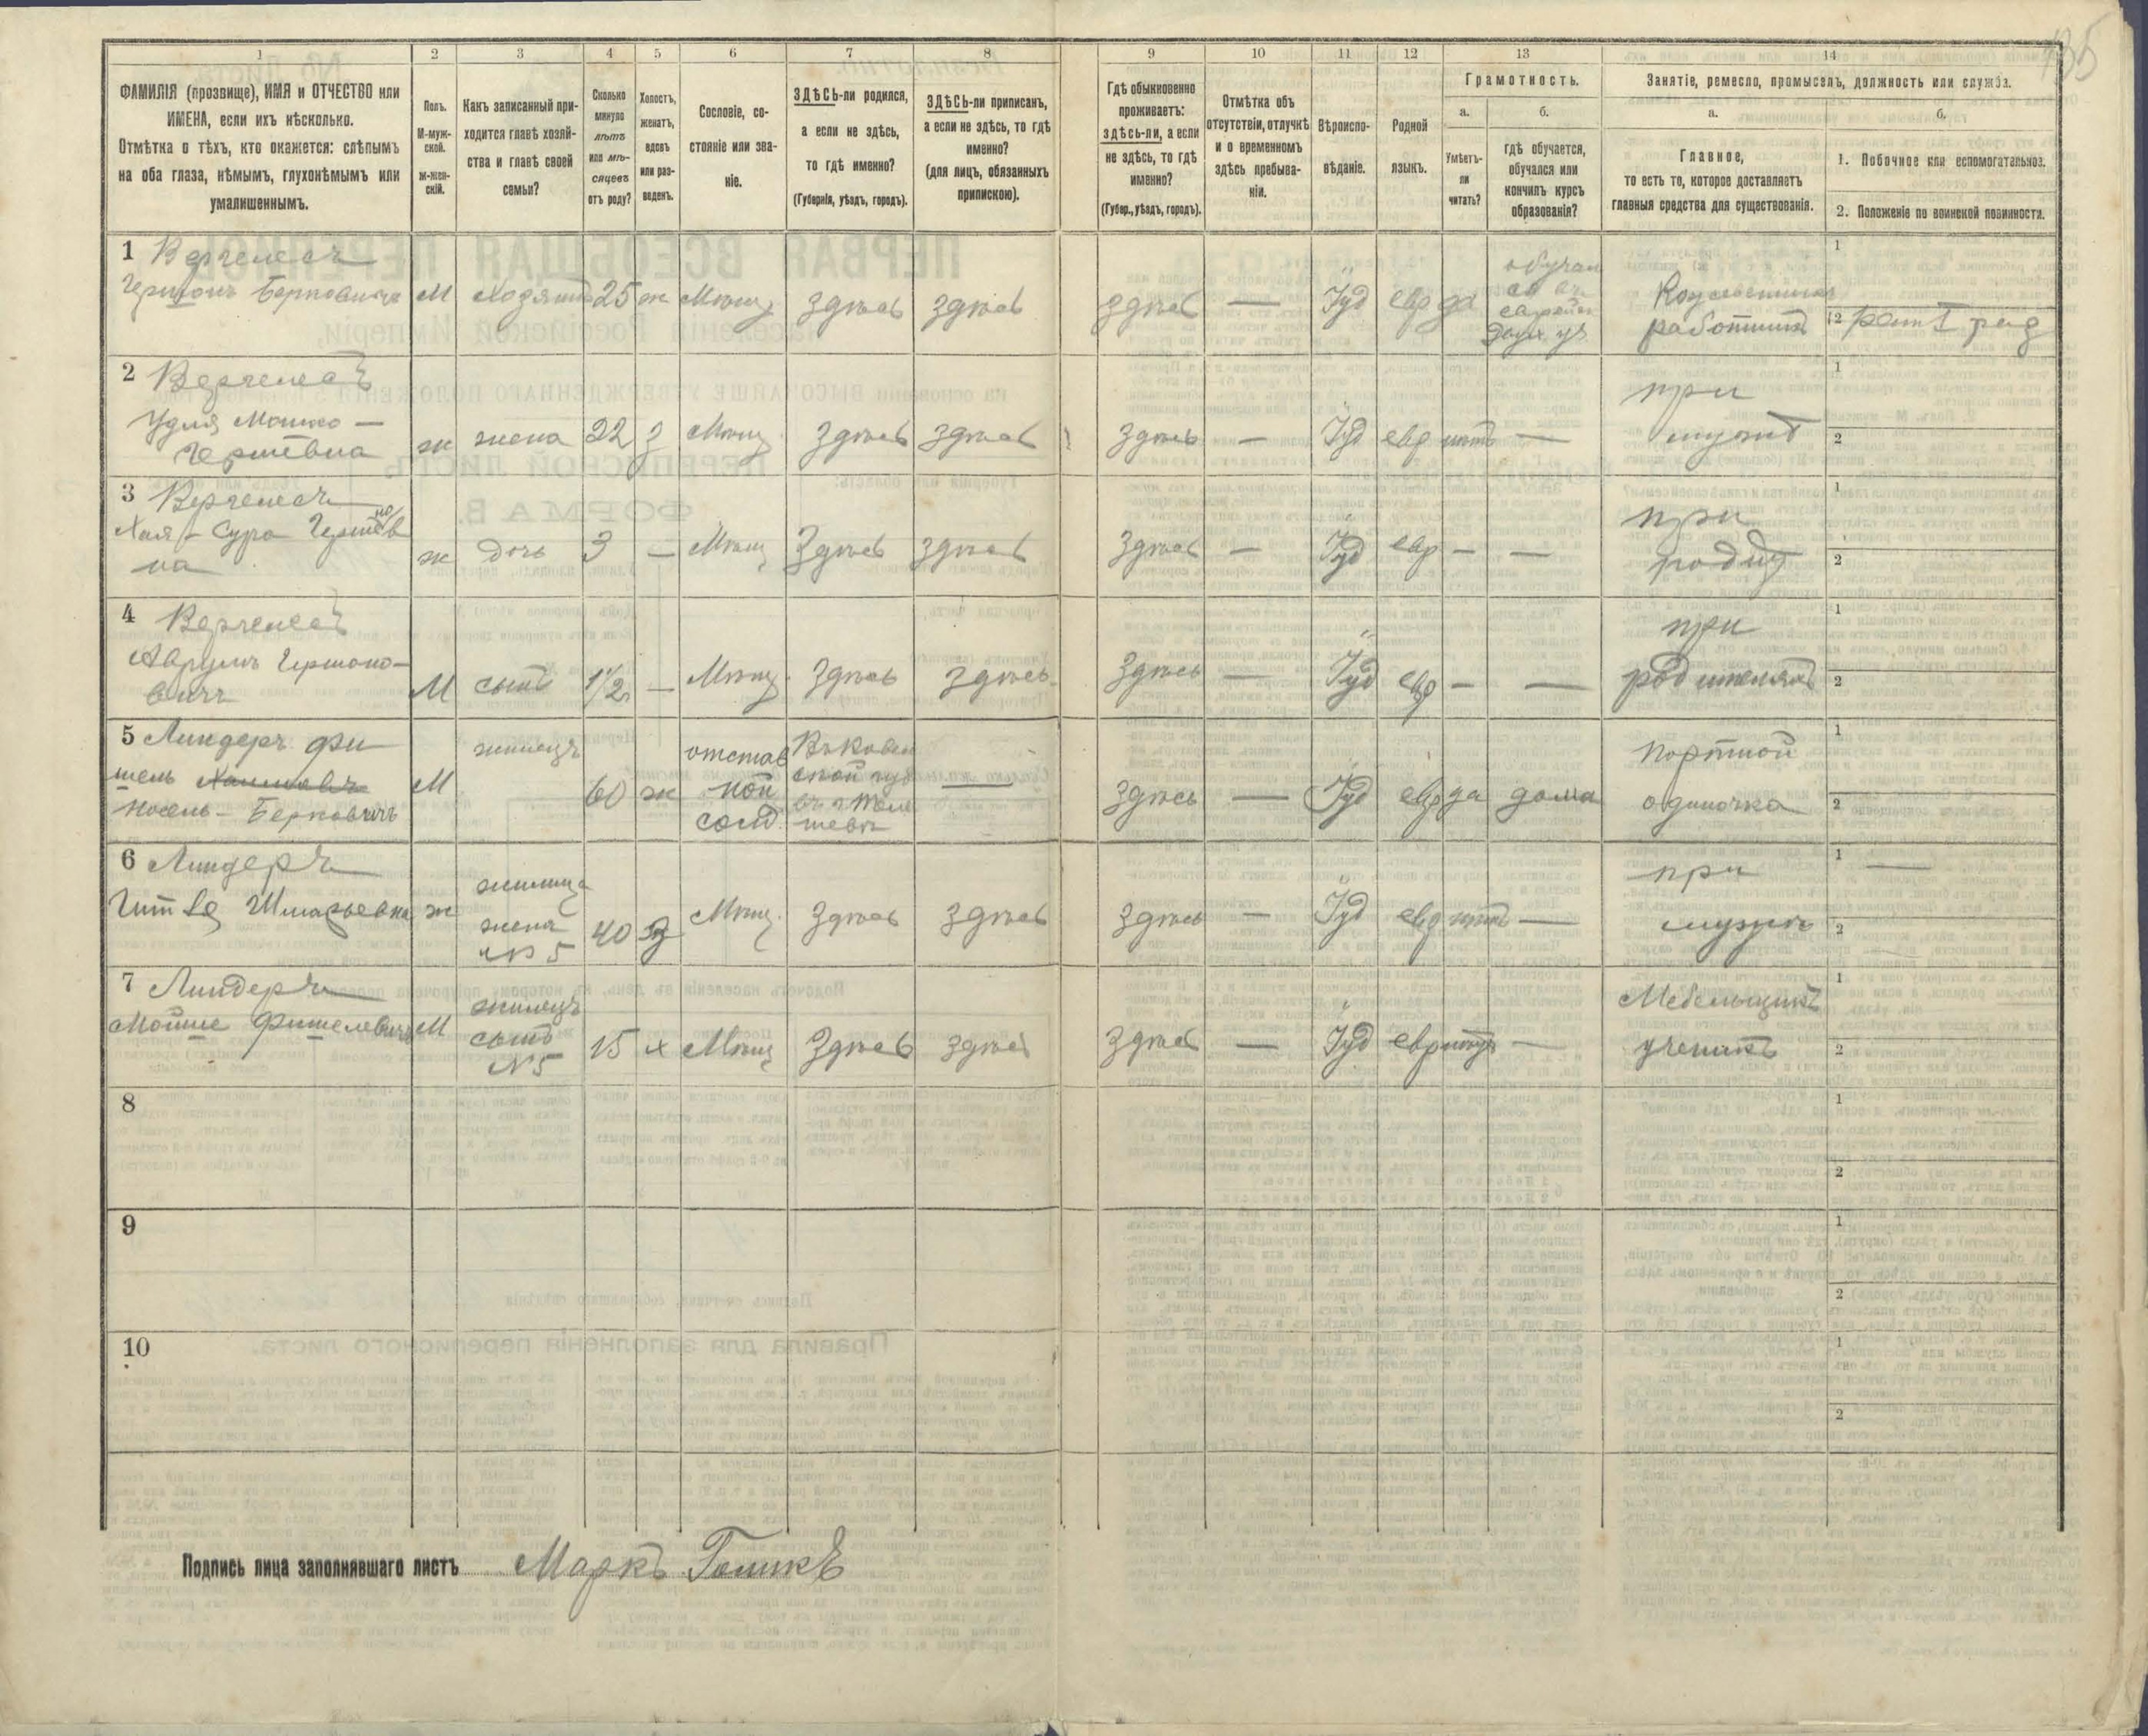 135
1 2 3 4 5 6 7 8 9 10 11 12 13 14
ФАМИЛІЯ (прозвище), ИМЯ и ОТЧЕСТВО или
ИМЕНА, если ихъ нѣсколько.
Отмѣтка о тѣхъ, кто окажется: слѣпымъ
на оба глаза, нѣмымъ, глухонѣмымъ или
умалишеннымъ.
Полъ.
М-муж-
ской.
ж-жен-
скій.
Какъ записанный при-
ходится главѣ хозяй-
ства и главѣ своей
семьи?
Сколько
минуло
лѣтъ
или мѣ-
сяцевъ
отъ роду?
Холостъ,
женатъ,
вдовъ
или раз-
веденъ.
Сословіе, со-
стояніе или зва-
ніе.
ЗДѢСЬ-ли родился,
а если не здѣсь,
то гдѣ именно?
(Губернія, уѣздъ, городъ).
ЗДѢСЬ-ли приписанъ,
а если не здѣсь, то гдѣ
именно?
(для лицъ, обязанныхъ
припискою).
Гдѣ обыкновенно
проживаетъ:
здѣсь-ли, а если
не здѣсь, то гдѣ
именно?
(Губер., уѣздъ, городъ).
Отмѣтка объ
отсутствіи, отлучкѣ
и о временномъ
здѣсь пребыва-
ніи.
Вѣроиспо-
вѣданіе.
Родной
языкъ.
Грамотность.
а.
Умѣетъ-
ли
читать?
б.
гдѣ обучается,
обучался или
кончилъ курсъ
образованія?
Занятіе, ремесло, промыселъ, должность или служба.
а.
Главное,
то есть то, которое доставляетъ
главныя средства для существованія.
б.
1. Побочное или вспомогательное.
2. Положеніе по воинской повинности.
1 Верчелесъ
Гершонъ Берковичъ М 25 ж Мѣщ здѣсь здѣсь здѣсь — Іуд евр да
работникъ
2 Верчелесъ
Удля Мошко-
Гершевна ж жена 22 з Мѣщ здѣсь здѣсь здѣсь — Іуд евр нѣтъ —
при
мужѣ
3 Верчелесъ
Хая-Сура
на ж дочь 3 — Мѣщ здѣсь здѣсь здѣсь — Іуд евр — —
при
родит
4 Верчелесъ
Аврумъ Гершоно-
вичъ М сынъ 1/2 — Мѣщ. здѣсь здѣсь здѣсь — Іуд евр — —
при
родителяхъ
5 Линдеръ Фи
шель
Іосель-Берковичъ М жилецъ 60 ж
отстав
ной
солд
Въ Ковен
ской губ
— здѣсь — Іуд евр да дома
портной
одиночка
6 Линдеръ
Гитля Шмарьевна ж
жилица
жена
№ 5 40 з Мѣщ. здѣсь здѣсь здѣсь — Іуд евр нѣтъ —
при
мужѣ
7 Линдеръ
Мойше Фишелевичъ М
жилецъ
сынъ
№ 5 15 х Мѣщ здѣсь здѣсь здѣсь — Іуд евр нѣтъ —
Мебельщикъ
ученикъ
8
9
10
Подпись лица заполнявшаго листъ Маркъ